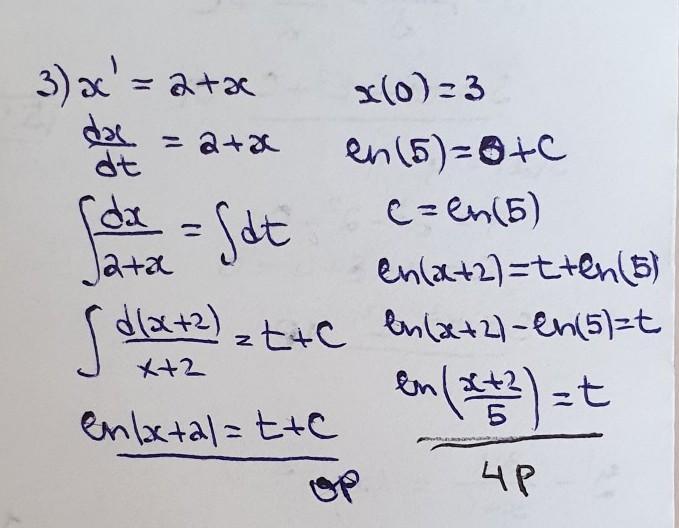 3) x' = 2+x
dx/dt = 2+x
∫ dx/2+x = ∫dt
∫ d(x+2)/x+2 = t+C
ln|x+2| = t+C
x(0)=3
ln(5)=0+C
C=ln(5)
ln(x+2)=t+ln(5)
ln(x+2)-ln(5)=t
ln(x+2/5)=t
4P